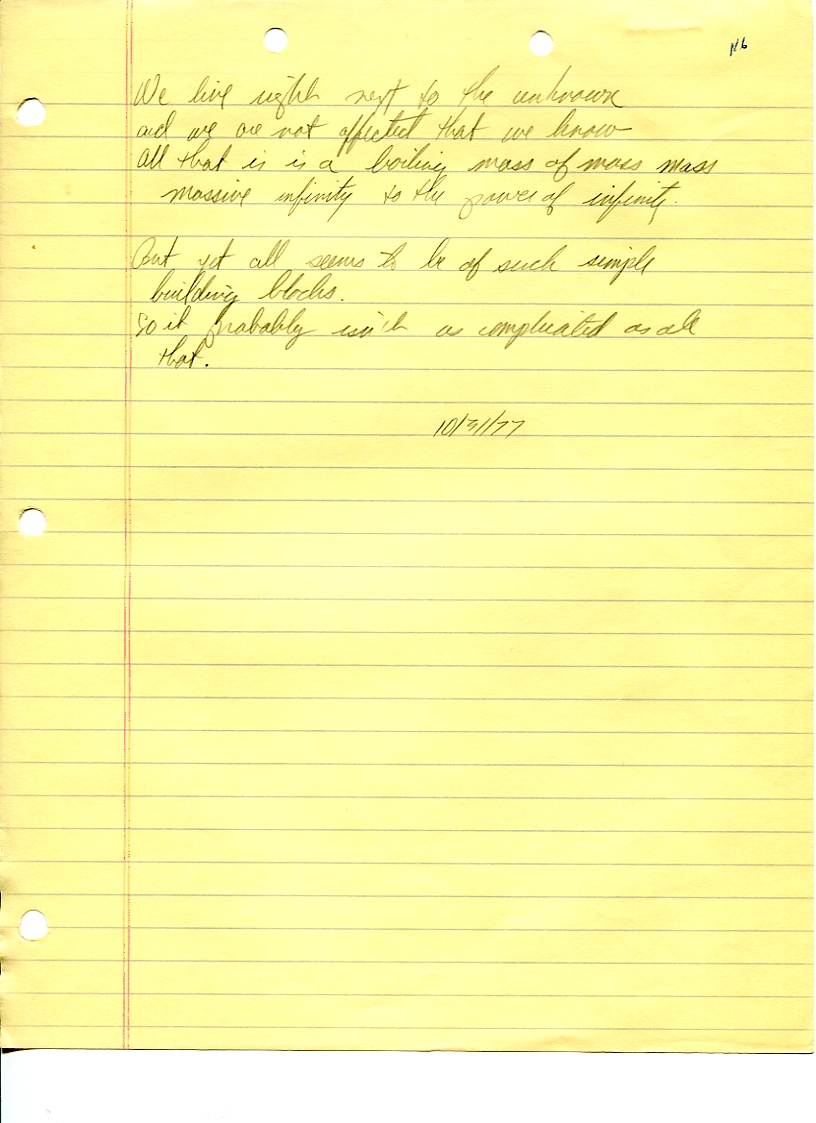 We live right next to the unknown
and we are not affected that we know
all that is is a boiling mass of mass mass
massive infinity to the power of infinity.
But yet all seems to be of such simple
building blocks.
So it probably isn't as complicated as all
that.
10/31/77